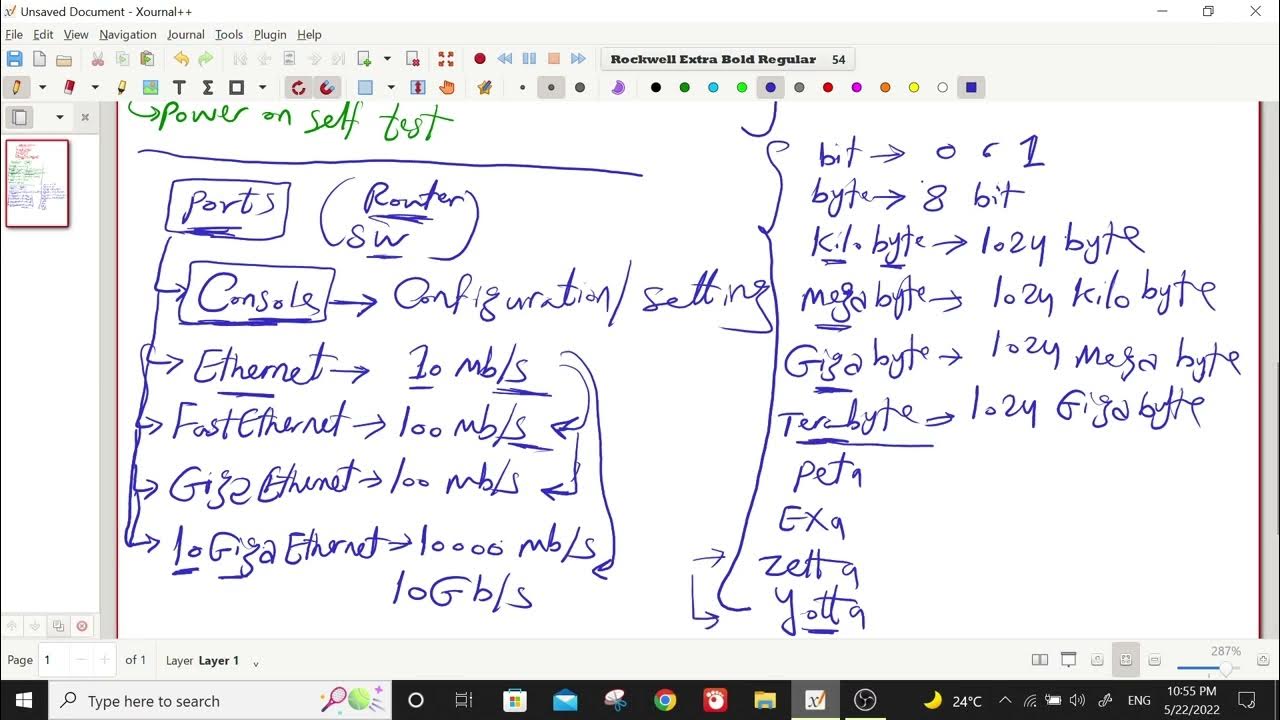 Unsaved Document - Xournal++
File Edit View Navigation Journal Tools Plugin Help
Rockwell Extra Bold Regular 54
Power on self test
Ports (Router
SW)
Console → Configuration/setting
Ethernet → 10 mb/s
FastEthernet → 100 mb/s
Giga Ethernet → 100 mb/s
10 Giga Ethernet → 10000 mb/s
10Gb/s
bit → 0 6 1
byte → 8 bit
Kilo byte → 1024 byte
Mega byte → 1024 Kilo byte
Giga byte → 1024 Mega byte
Tera byte → 1024 Giga byte
Peta
EXa
Zetta
Yotta
Page 1 of 1 Layer Layer 1
287%
Type here to search
24°C ENG 10:55 PM
5/22/2022